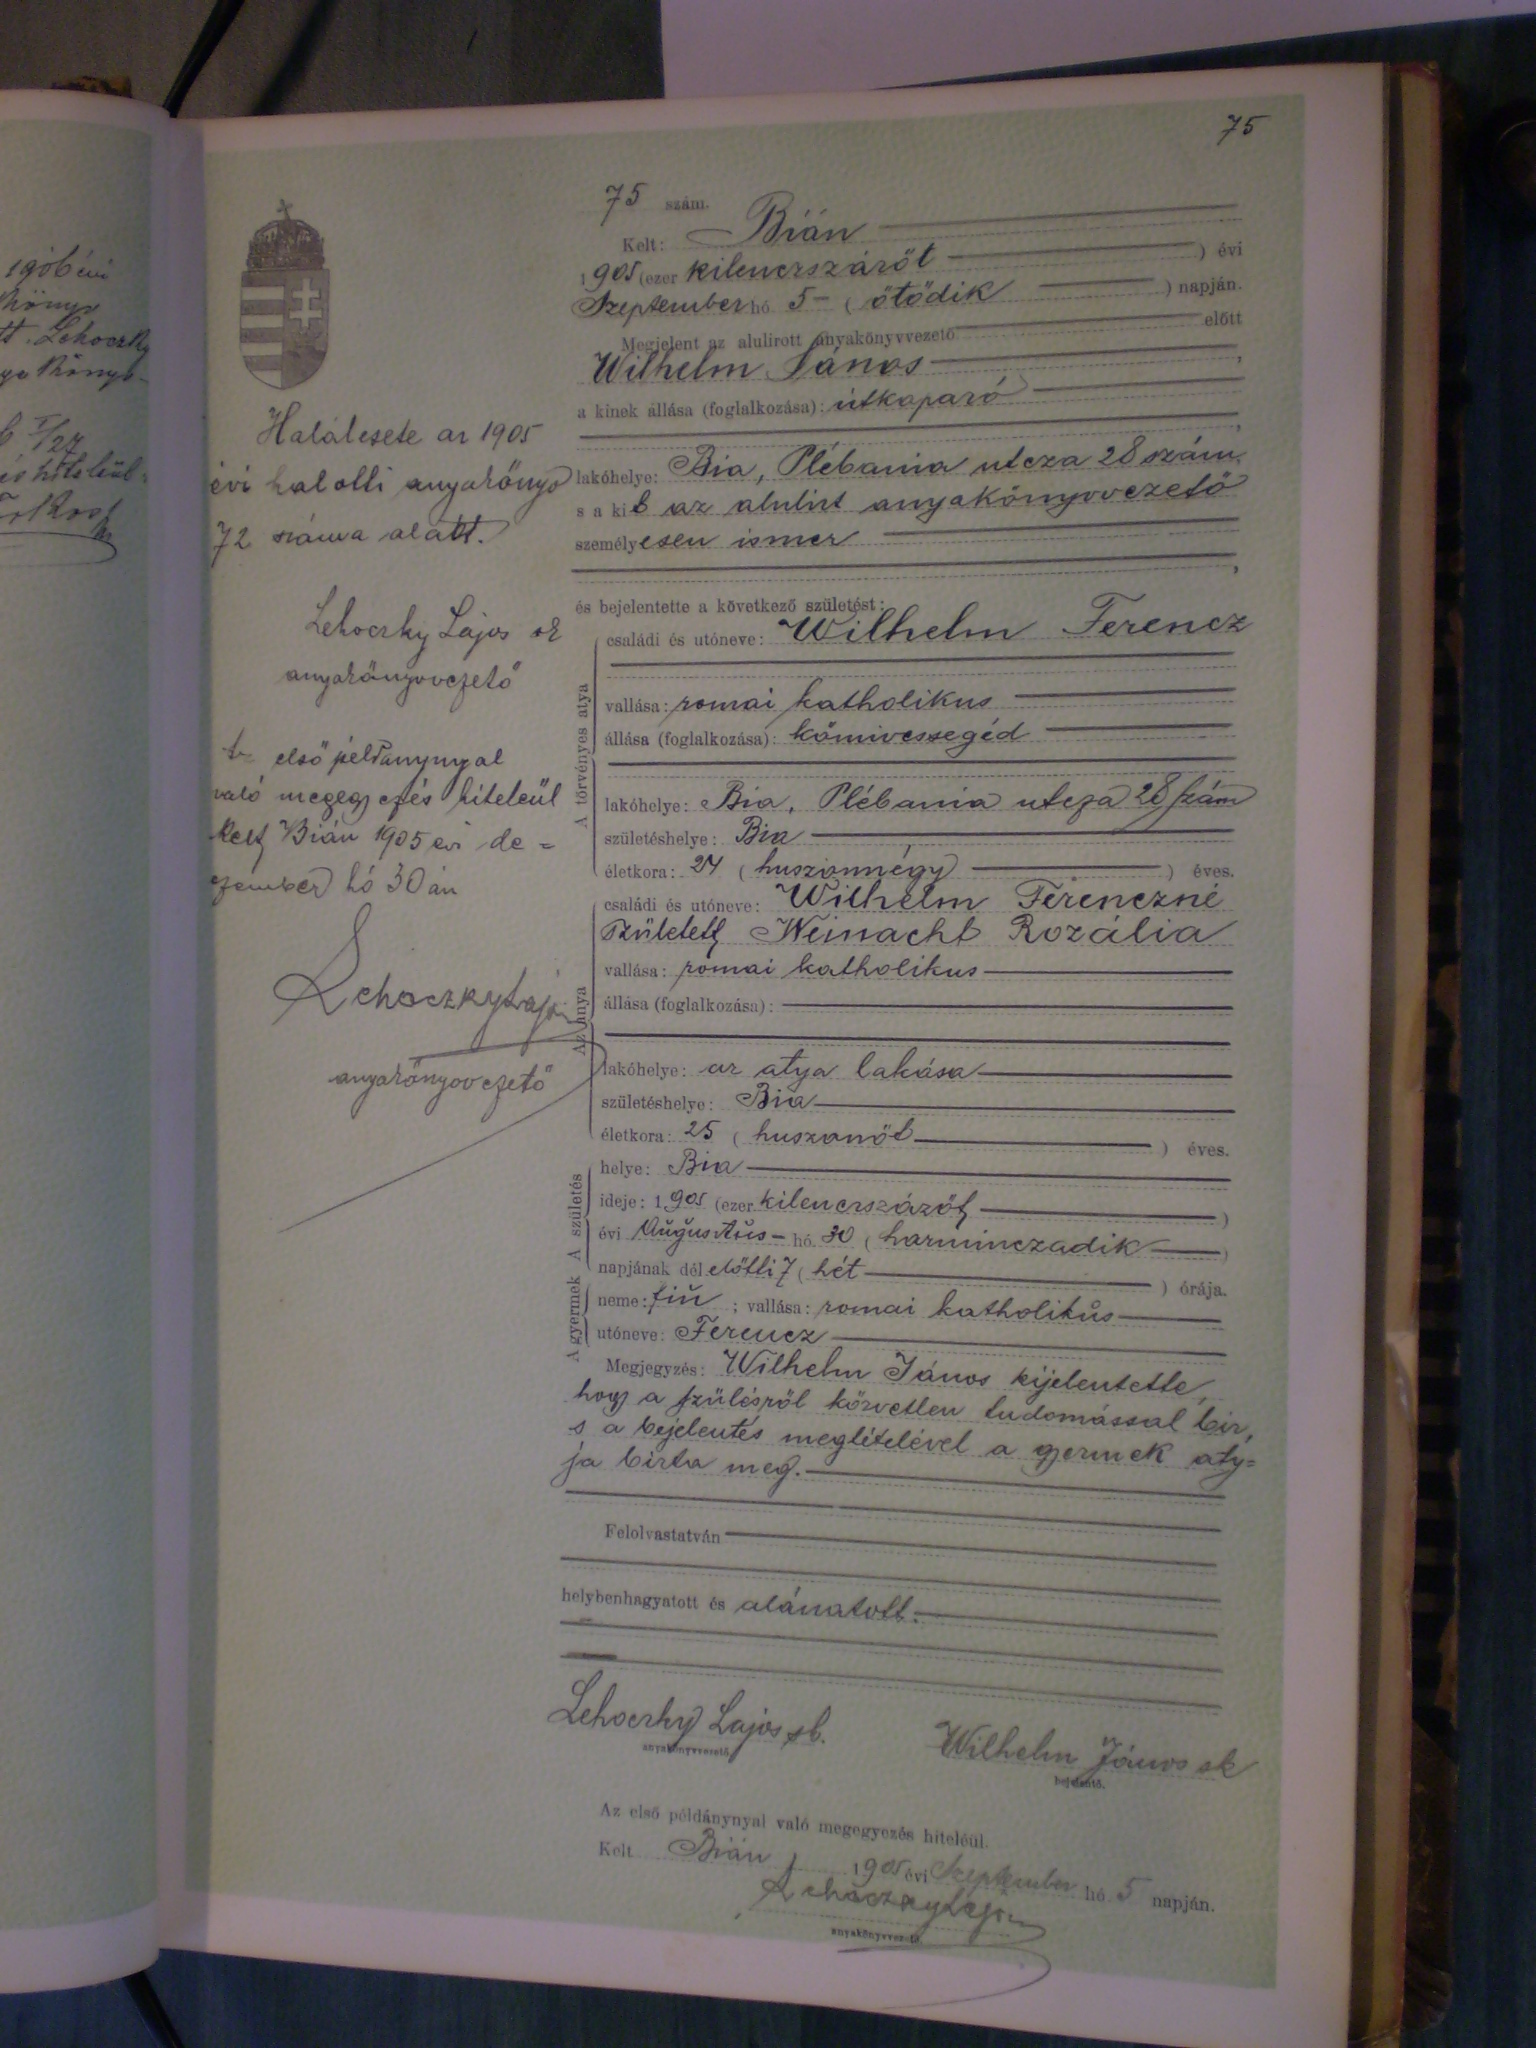 75
75 szám.
Kelt: Bián
1905 (ezer kilenczszázöt ) évi
Szeptember hó 5 - ( ötödik ) napján.
Megjelent az alulirott anyakönyvvezető előtt
Wilhelm János ,
a kinek állása (foglalkozása): útkaparó
,
lakóhelye: Bia, Plébania utcza 28 szám.
s a kit az alulirt anyakönyvvezető
személyesen ismer
,
és bejelentette a következő születést:
A törvényes atya
családi és utóneve: Wilhelm Ferencz
vallása: romai katholikus
állása (foglalkozása): kőmivessegéd
lakóhelye: Bia, Plébania utcza 28 szám
születéshelye: Bia
életkora: 24 ( huszonnégy ) éves.
Az anya
családi és utóneve: Wilhelm Ferenczné
született Weinacht Rozália
vallása: római katholikus
állása (foglalkozása):
lakóhelye: az atya lakása
születéshelye: Bia
életkora: 25 ( huszonöt ) éves.
A születés
helye: Bia
ideje: 1905 (ezer kilenczszázöt )
évi Augusztus - hó 30 ( harminczadik )
napjának dél előtti 7 ( hét ) órája.
A gyermek
neme: fiú ; vallása: romai katholikus
utóneve: Ferencz
Megjegyzés: Wilhelm János kijelentette,
hogy a szülésről közvetlen tudomással bir,
s a bejelentés megtételével a gyermek aty=
ja bizta meg.
Felolvastatván
helybenhagyatott és aláiratott.
Lehoczky Lajos sk.
anyakönyvvezető.
Wilhelm János sk
bejelentő.
Az első példánynyal való megegyezés hiteléül.
Kelt Bián, 1905 évi Szeptember hó 5 napján.
Lehoczky Lajos
anyakönyvvezető.
Halálesete az 1905
évi halotti anyakönyv
72 száma alatt.
Lehoczky Lajos sk
anyakönyvvezető
első példánynyal
való megegyezés hiteleül
kelt Bián 1905 évi de=
czember hó 30 án
Lehoczky Lajos
anyakönyvvezető
1906 évi
Lehoczky